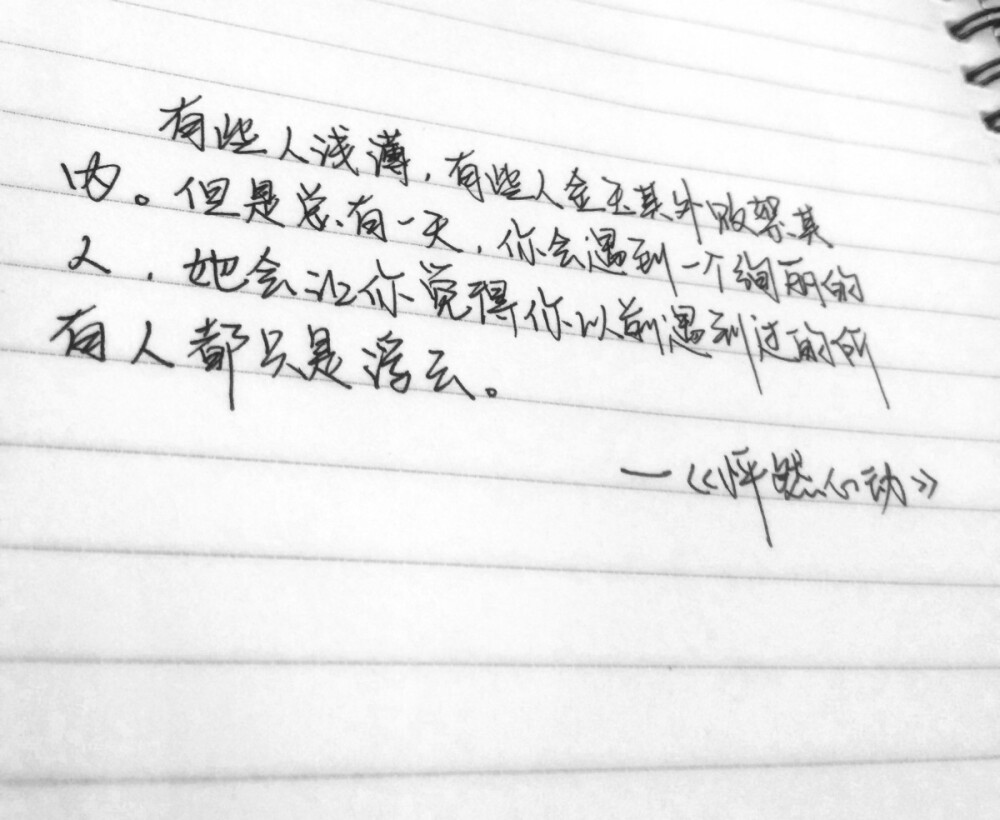 有些人浅薄，有些人金玉其外败絮其
内。但是总有一天，你会遇到一个绚丽的
人，她会让你觉得你以前遇到过的所
有人都只是浮云。
—《怦然心动》